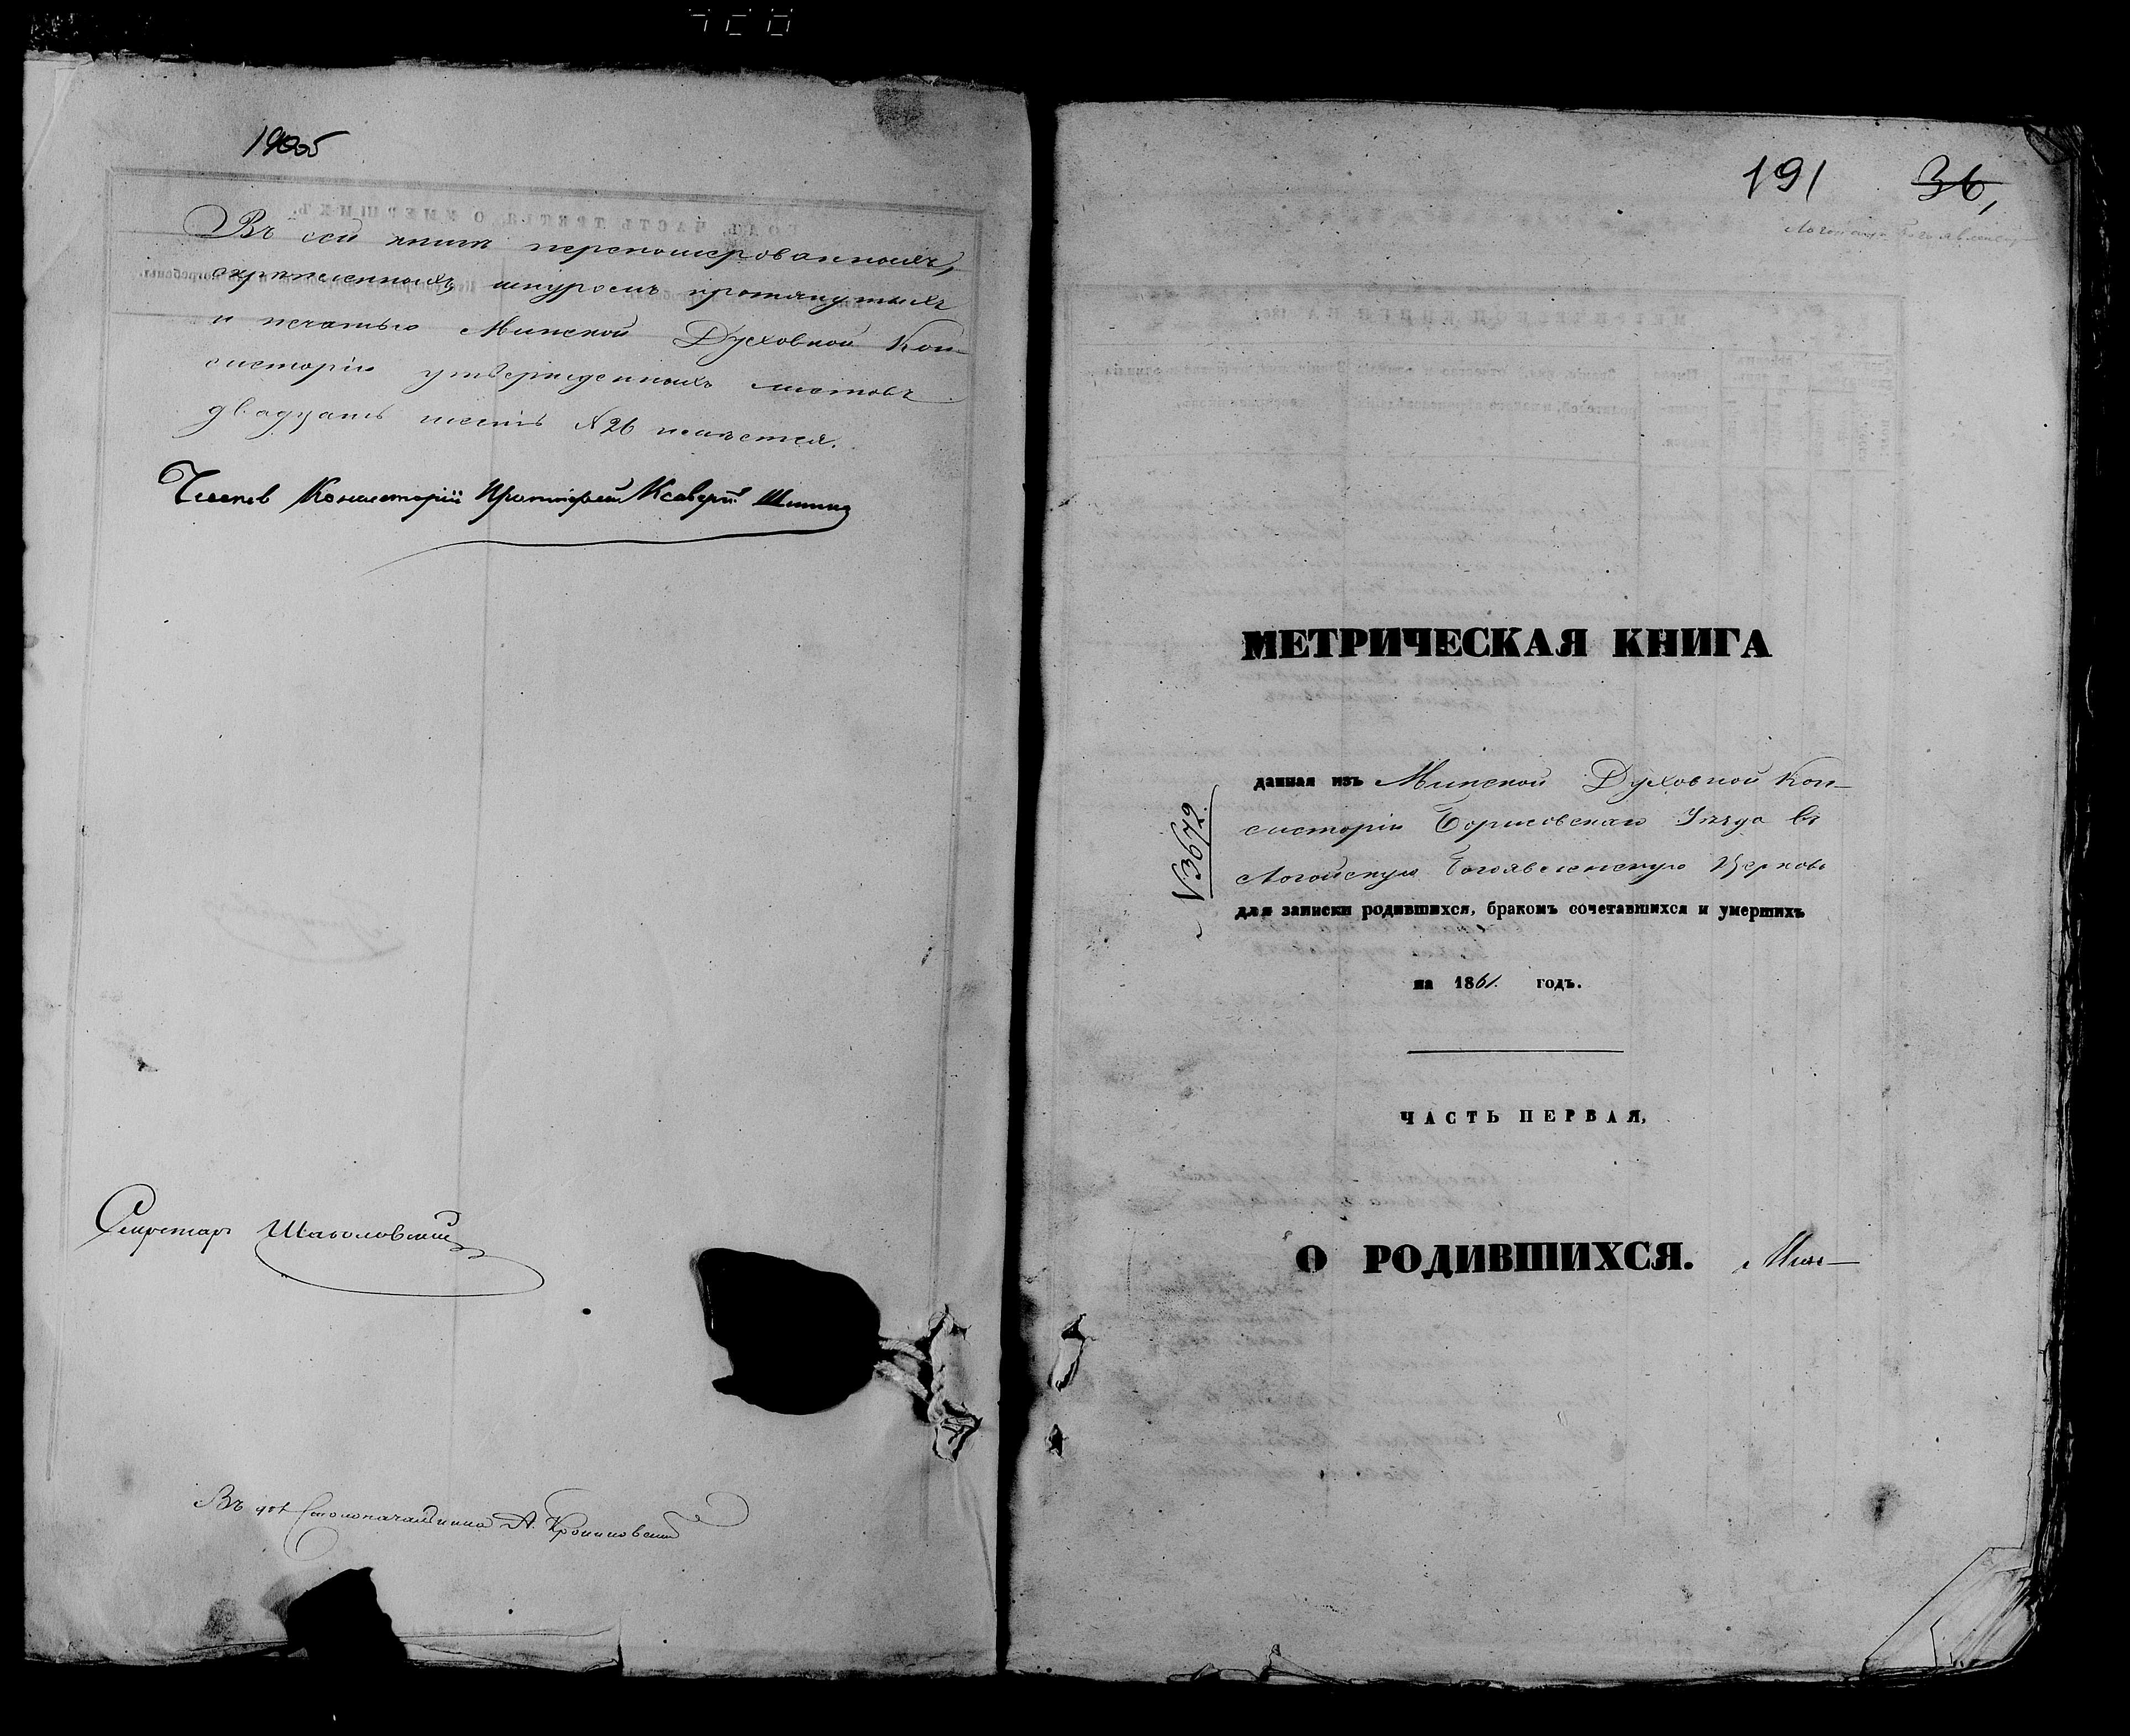 190об
Въ сей книгѣ перенумерованныхъ,
скрѣпленныхъ, шнуромъ протянутыхъ
и печатью Минской Духовной Кон-
систоріи утвержденныхъ листовъ
двадцать шесть №26 имѣется.
Членъ Консисторіи Протоіерей Ксаверій
Секретарь
Въ Столоначальника А.
191 36,
Логойскую Богоявленскую
МЕТРИЧЕСКАЯ КНИГА
данная изъ Минской Духовной Кон-
систоріи Борисовскаго Уѣзда въ
Логойскую Богоявленскую Церковь
№3672.
для записки родившихся, бракомъ сочетавшихся и умершихъ
на 1861. годъ.
ЧАСТЬ ПЕРВАЯ,
О РОДИВШИХСЯ.